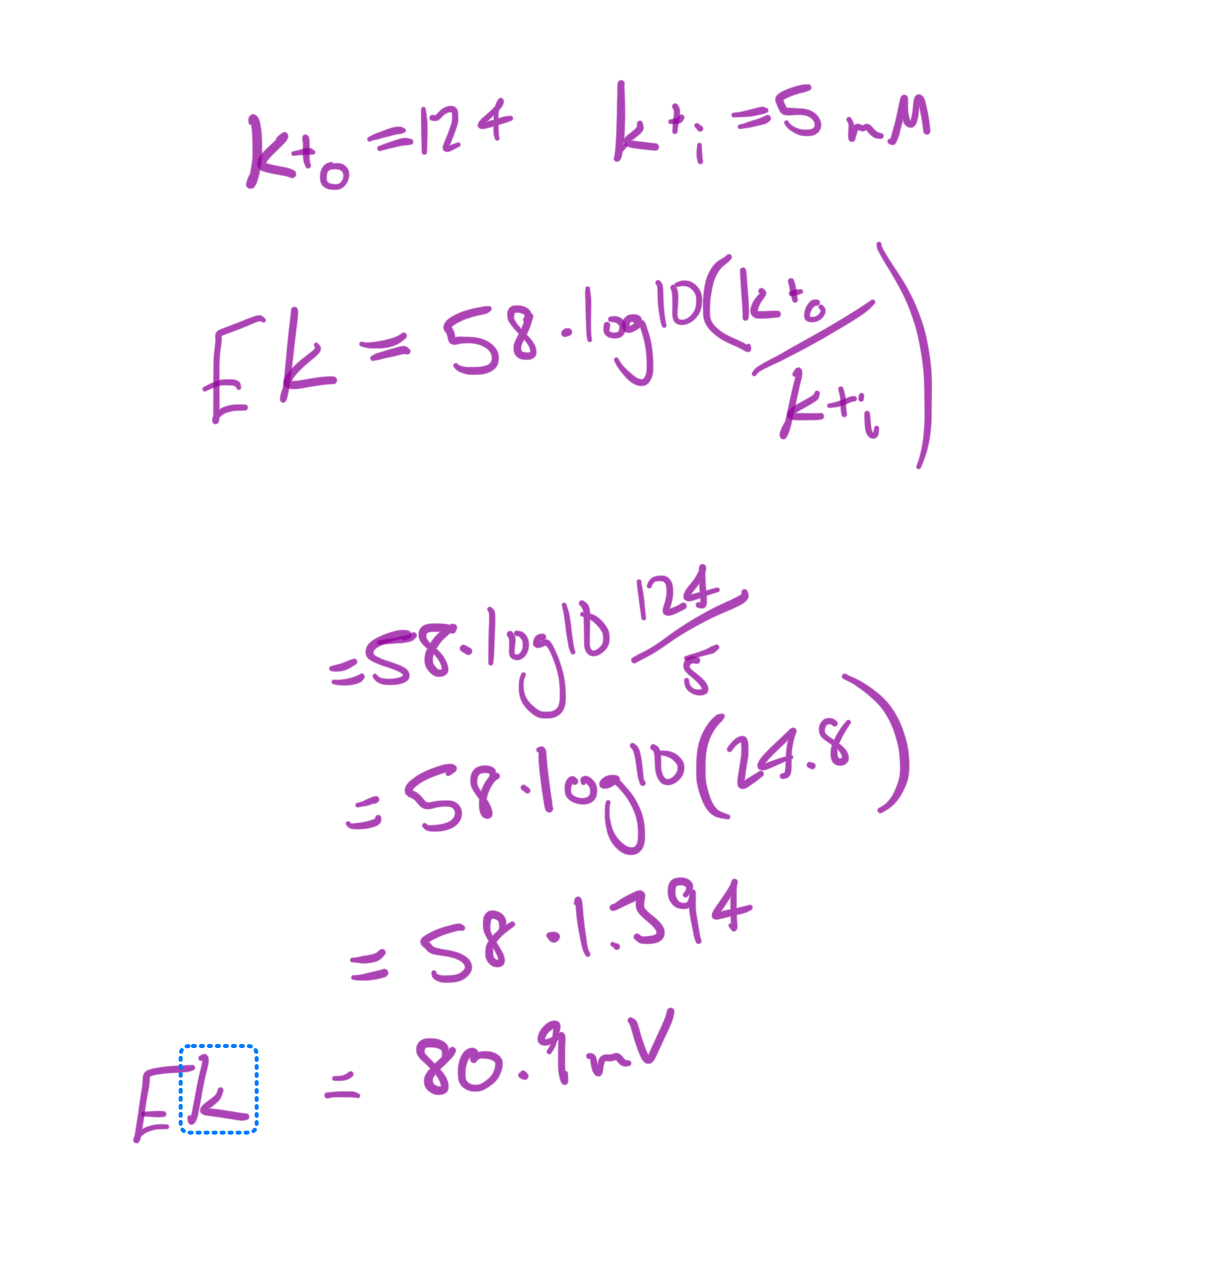 k+o = 124 k+i = 5 mM
Ek = 58 · log10(k+o/k+i)
= 58 · log10 124/5
= 58 · log10(24.8)
= 58 · 1.394
Ek = 80.9 mV